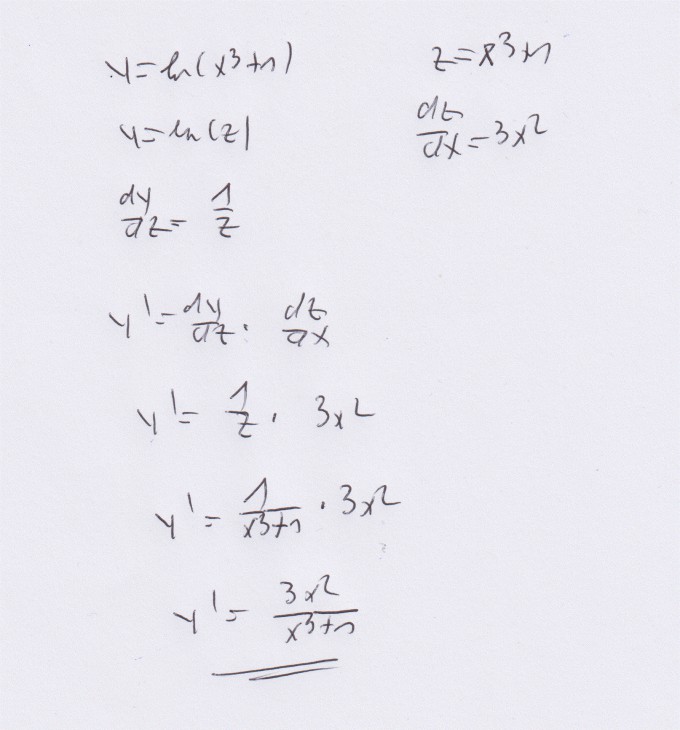 y=ln(x³+1) z=x³+1
y=ln(z) dz/dx=3x²
dy/dz= 1/z
y'=dy/dz · dz/dx
y'= 1/z · 3x²
y'= 1/(x³+1) · 3x²
y'= 3x²/(x³+1)